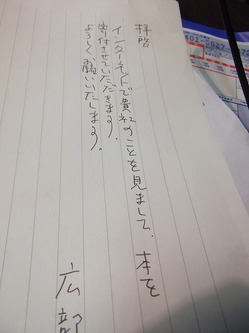 拝啓
インターネットで貴社のことを見まして、本を
寄付させていただきます。
よろしくお願いいたします。
広部